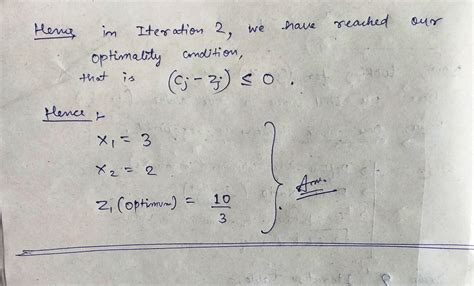 Hence in Iteration 2, we have reached our
optimality condition,
that is (Cj - Zj) ≤ 0 .
Hence,
x₁ = 3
x₂ = 2
Z₁ (optimum) = 10/3
Ans.